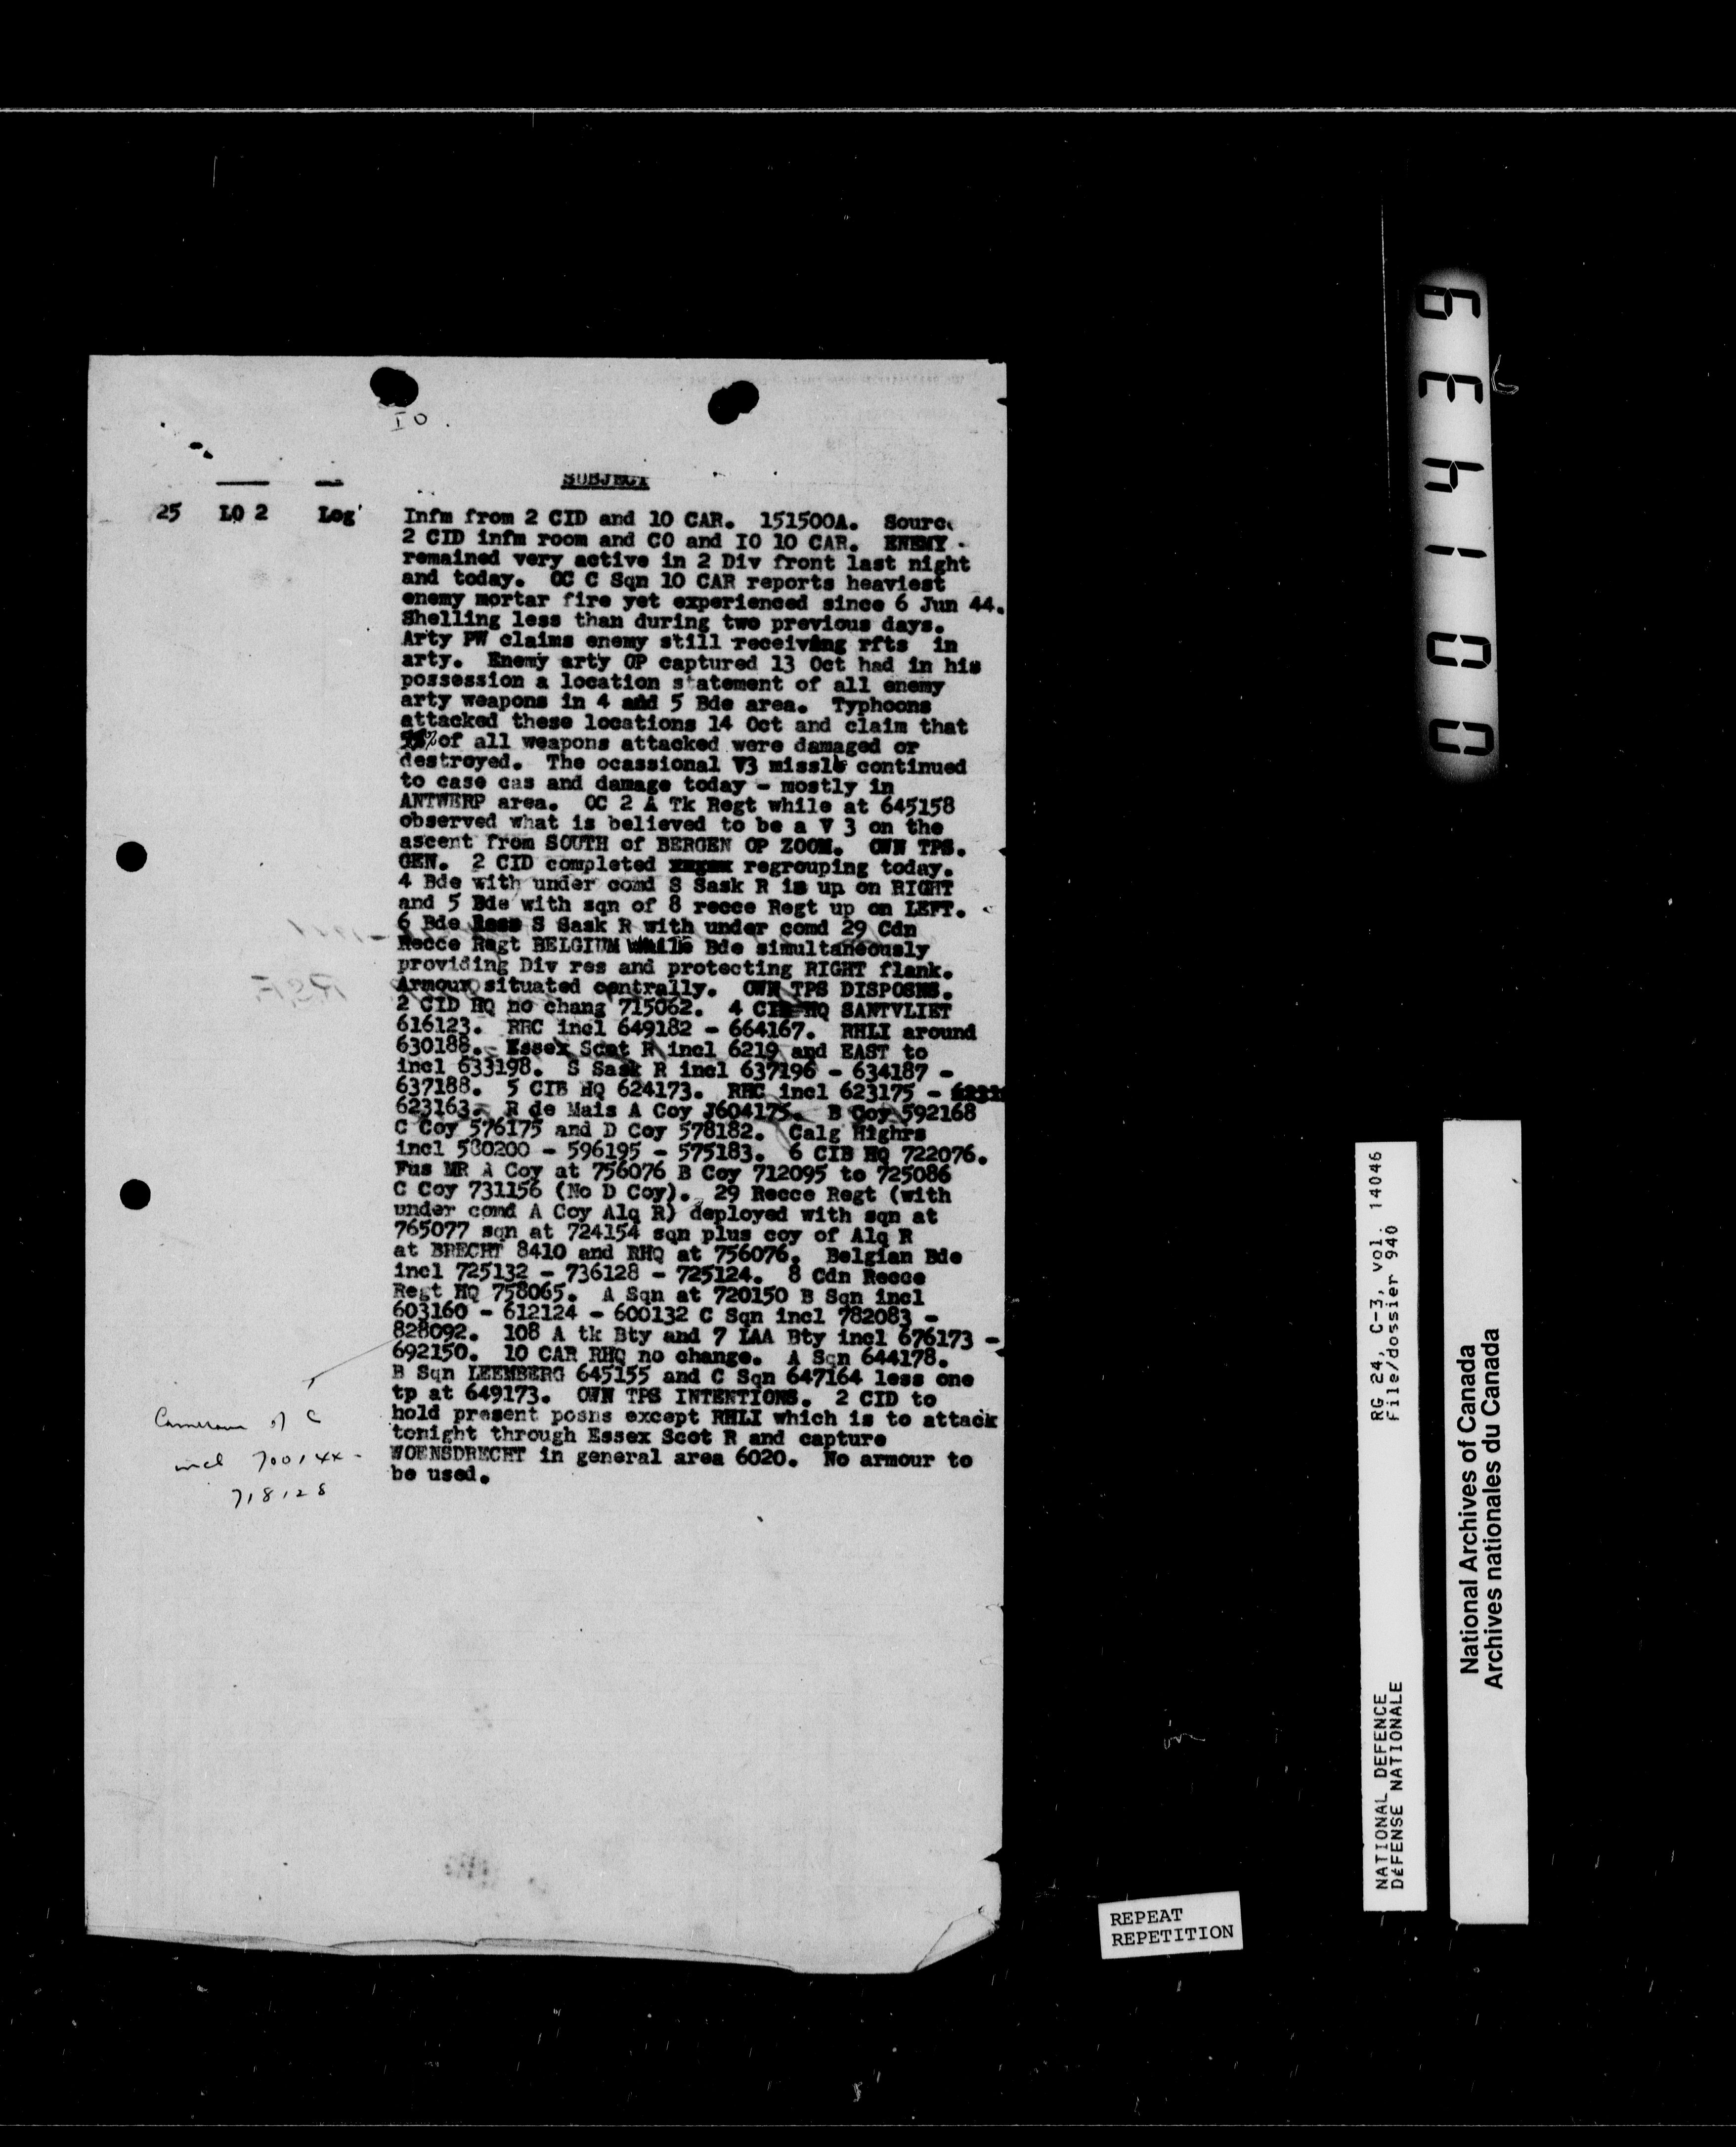 IO
SUBJECT
25 LO 2 Log
Infm from 2 CID and 10 CAR. 151500A. Source
2 CID infm room and CO and IO 10 CAR. ENEMY -
remained very active in 2 Div front last night
and today. OC C Sqn 10 CAR reports heaviest
enemy mortar fire yet experienced since 6 Jun 44.
Shelling less than during two previous days.
Arty PW claims enemy still receiving rfts in
arty. Enemy arty OP captured 13 Oct had in his
possession a location statement of all enemy
arty weapons in 4 and 5 Bde area. Typhoons
attacked these locations 14 Oct and claim that
of all weapons attacked were damaged or
destroyed. The ocassional V3 missle continued
to case cas and damage today - mostly in
ANTWERP area. OC 2 A Tk Regt while at 645158
observed what is believed to be a V 3 on the
ascent from SOUTH of BERGEN OP ZOOM. OWN TPS.
GEN. 2 CID completed regrouping today.
4 Bde with under comd S Sask R is up on RIGHT
and 5 Bde with sqn of 8 recce Regt up on LEFT.
6 Bde less S Sask R with under comd 29 Cdn
Recce Regt BELGIUM Bde simultaneously
providing Div res and protecting RIGHT flank.
Armour situated centrally. OWN TPS DISPOSNS.
2 CID HQ no chang 715062. 4 CIB HQ SANTVLIET
616123. RRC incl 649182 - 664167. RHLI around
630188. Essex Scot R incl 6219 and EAST to
incl 633198. S Sask R incl 637196 - 634187 -
637188. 5 CIB HQ 624173. RHC incl 623175 -
623163. R de Mais A Coy J604175. B Coy 592168
C Coy 576175 and D Coy 578182. Calg Highrs
incl 580200 - 596195 - 575183. 6 CIB HQ 722076.
Fus MR A Coy at 756076 B Coy 712095 to 725086
C Coy 731156 (No D Coy). 29 Recce Regt (with
under comd A Coy Alq R) deployed with sqn at
765077 sqn at 724154 sqn plus coy of Alq R
at BRECHT 8410 and RHQ at 756076. Belgian Bde
incl 725132 - 736128 - 725124. 8 Cdn Recce
Regt HQ 758065. A Sqn at 720150 B Sqn incl
603160 - 612124 - 600132 C Sqn incl 782083 -
828092. 108 A tk Bty and 7 LAA Bty incl 676173 -
692150. 10 CAR RHQ no change. A Sqn 644178.
B Sqn LEEMBERG 645155 and C Sqn 647164 less one
tp at 649173. OWN TPS INTENTIONS. 2 CID to
hold present posns except RHLI which is to attack
tonight through Essex Scot R and capture
WOENSDRECHT in general area 6020. No armour to
be used.
Cameron of C
incl 700144 -
718128
REPEAT
REPETITION
001436
RG 24, C-3, vol. 14046
File/dossier 940
NATIONAL DEFENCE
DÉFENSE NATIONALE
National Archives of Canada
Archives nationales du Canada